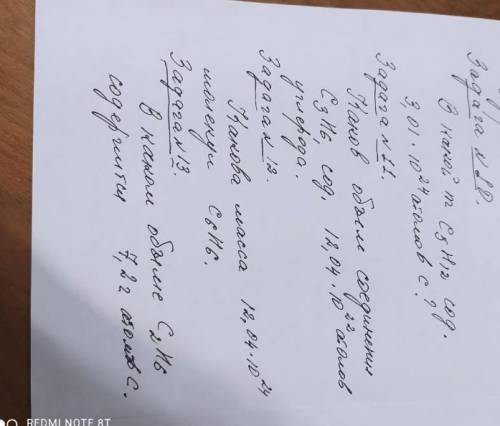 Задача №10.
В какой m C5H12 сод.
3,01·10²⁴ атомов С?
Задача №11.
Каков объем соединения
C3H6, сод. 12,04·10²² атомов
углерода.
Задача №12.
Какова масса 12,04·10²⁴
молекул C6H6.
Задача №13.
В каком объеме C2H6
содержится 7,2 г атомов С.
REDMI NOTE 8T